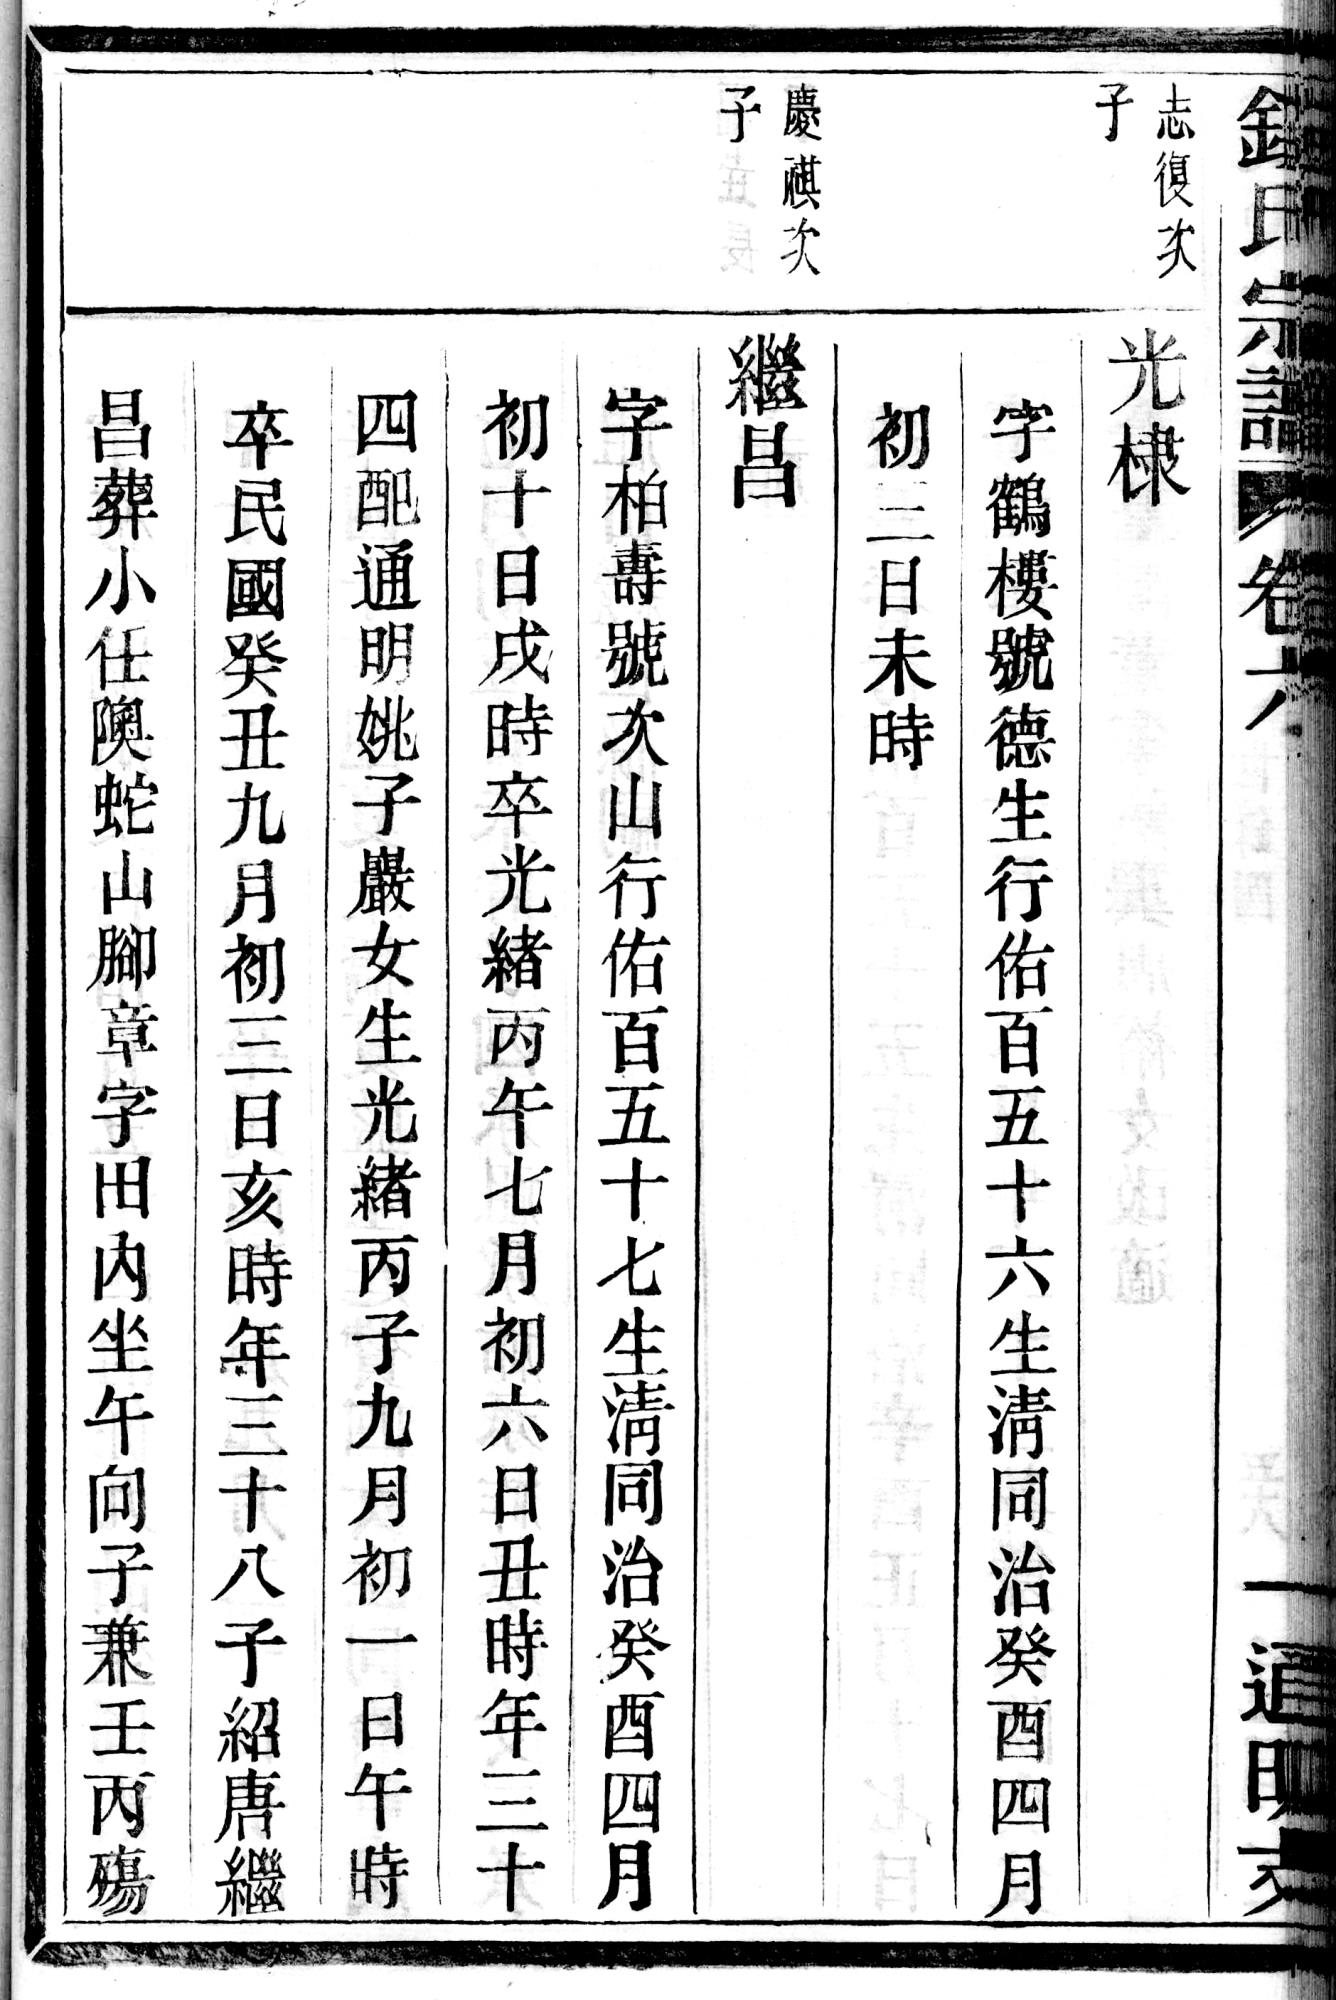 氏宗譜 卷六 道明支
志復次
子
光棣
字鶴樓號德生行佑百五十六生淸同治癸酉四月
初三日未時
慶祺次
子
繼昌
字柏壽號次山行佑百五十七生淸同治癸酉四月
初十日戌時卒光緒丙午七月初六日丑時年三十
四配通明姚子嚴女生光緒丙子九月初一日午時
卒民國癸丑九月初三日亥時年三十八子紹唐繼
昌葬小任隩蛇山腳章字田內坐午向子兼壬丙殤